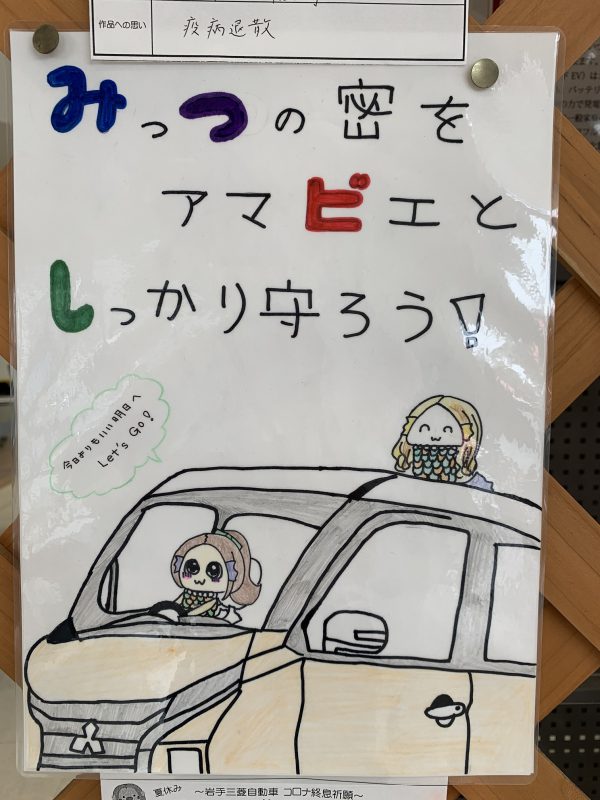 作品への思い
疫病退散
みっつの密を
アマビエと
しっかり守ろう!
今日よりもいい明日へ
Let's Go!
夏休み ～岩手三菱自動車 コロナ終息祈願～